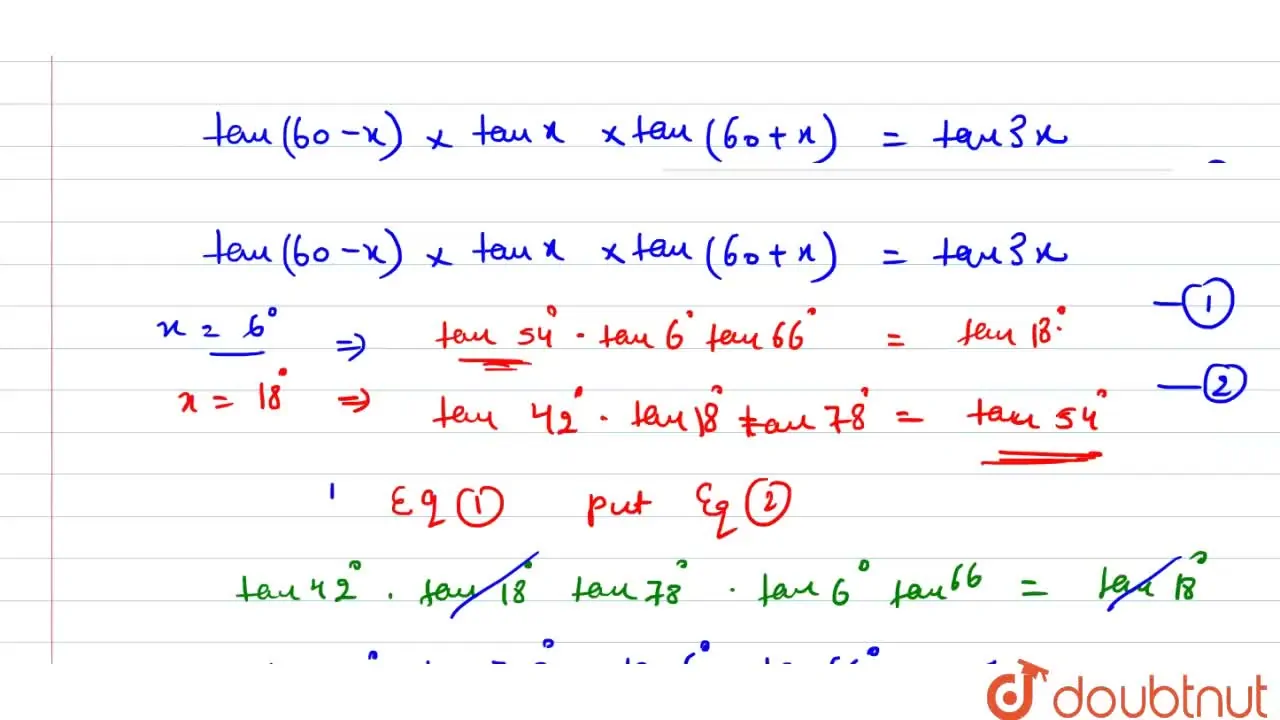 tan(60-x) × tan x × tan(60+x) = tan 3x
tan(60-x) × tan x × tan(60+x) = tan 3x
x = 6° ⇒ tan 54° · tan 6° tan 66° = tan 18° —①
x = 18° ⇒ tan 42° · tan 18° tan 78° = tan 54° —②
Eq ① put Eq ②
tan 42° · tan 18° tan 78° · tan 6° tan 66 = tan 18°
doubtnut